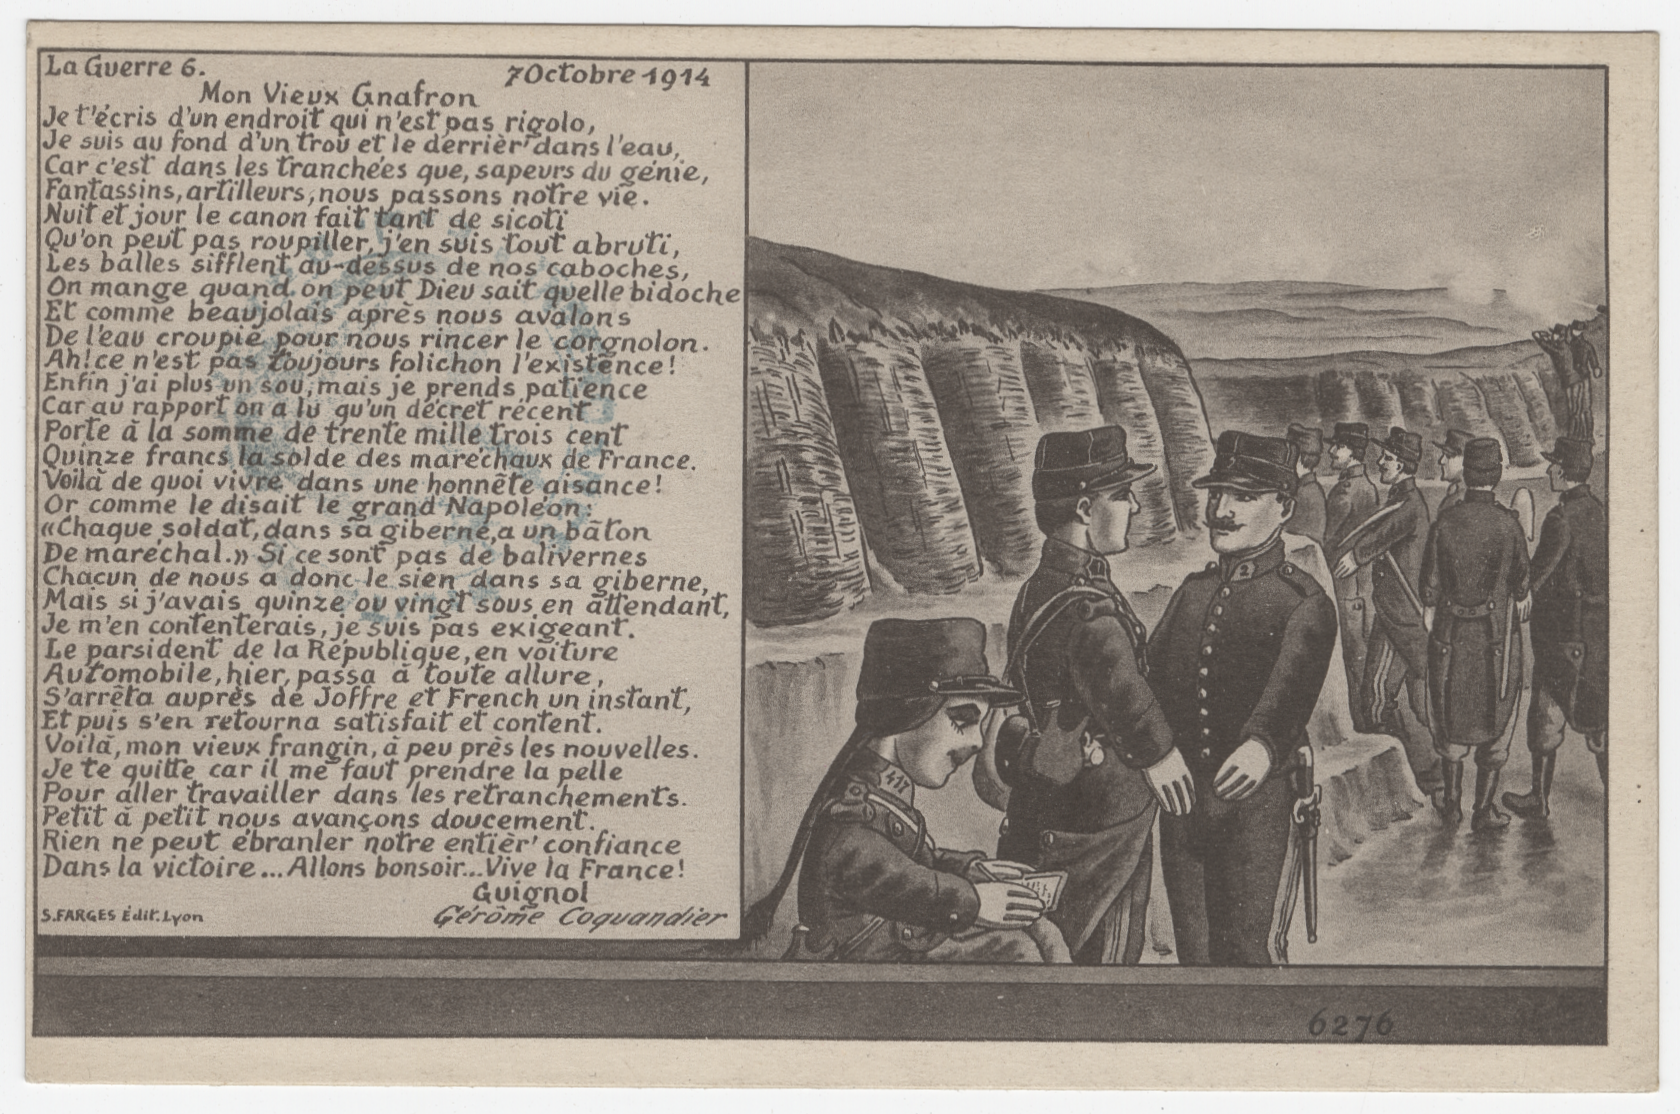 La Guerre 6.
7 Octobre 1914
Mon Vieux Gnafron
Je t'écris d'un endroit qui n'est pas rigolo,
Je suis au fond d'un trou et le derrièr' dans l'eau,
Car c'est dans les tranchées que, sapeurs du génie,
Fantassins, artilleurs, nous passons notre vie.
Nuit et jour le canon fait tant de sicoti
Qu'on peut pas roupiller, j'en suis tout abruti,
Les balles sifflent au-dessus de nos caboches,
On mange quand on peut Dieu sait quelle bidoche
Et comme beaujolais après nous avalons
De l'eau croupie pour nous rincer le corgnolon.
Ah! ce n'est pas toujours folichon l'existence!
Enfin j'ai plus un sou, mais je prends patience
Car au rapport on a lu qu'un décret récent
Porte à la somme de trente mille trois cent
Quinze francs la solde des maréchaux de France.
Voilà de quoi vivre dans une honnête aisance!
Or comme le disait le grand Napoléon:
«Chaque soldat, dans sa giberne, a un bâton
De maréchal.» Si ce sont pas de balivernes
Chacun de nous a donc le sien dans sa giberne,
Mais si j'avais quinze ou vingt sous en attendant,
Je m'en contenterais, je suis pas exigeant.
Le parsident de la République, en voiture
Automobile, hier, passa à toute allure,
S'arrêta auprès de Joffre et French un instant,
Et puis s'en retourna satisfait et content.
Voilà, mon vieux frangin, à peu près les nouvelles.
Je te quitte car il me faut prendre la pelle
Pour aller travailler dans les retranchements.
Petit à petit nous avançons doucement.
Rien ne peut ébranler notre entièr' confiance
Dans la victoire... Allons bonsoir... Vive la France!
Guignol
S. FARGES Édit. Lyon
Gérôme Coquandier
2
417
6276